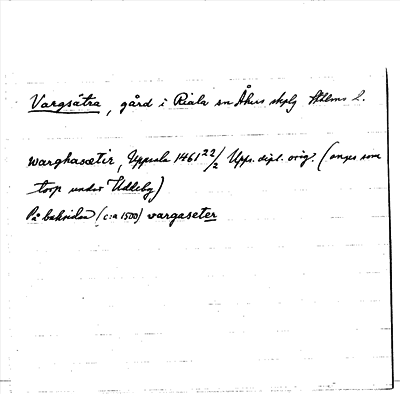 Vargsätra, gård i Riala sn Åkers skplg Sthlms l.
warghasætir, Uppsala 1461 22/2 Upps. dipl. orig. (anges som
torp under Ådleby)
På baksidan (c:a 1500) vargaseter